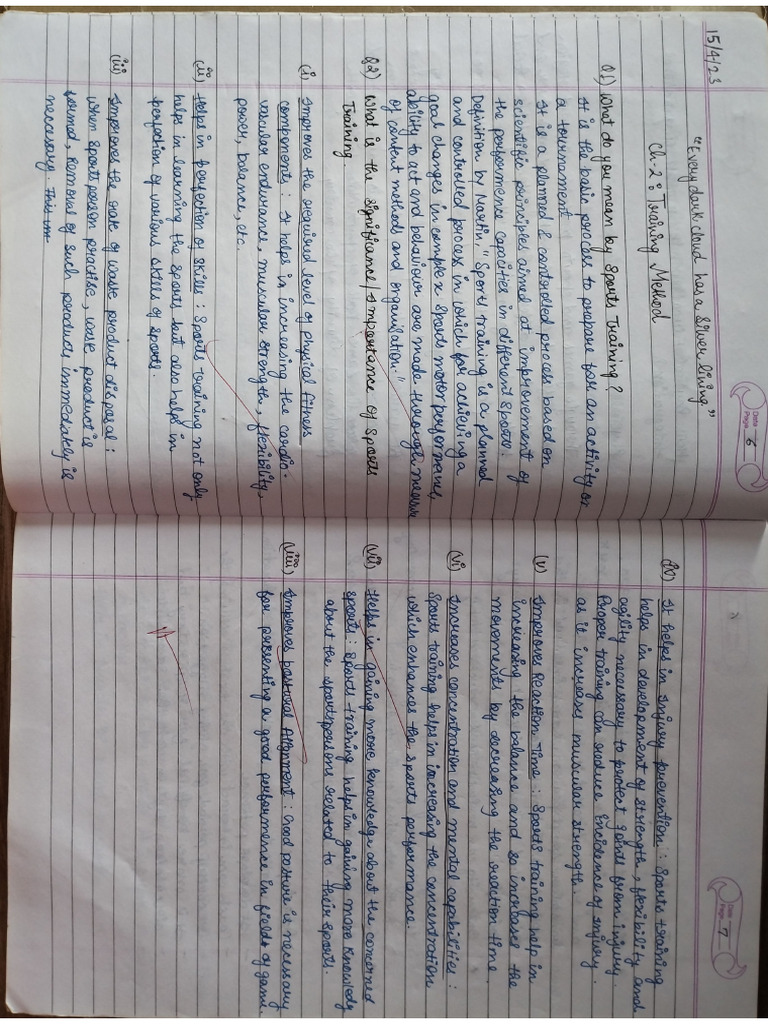 Date
Page 6
15/4/23
"Every dark cloud has a silver living"
Ch-2: Training Method
Q1) What do you mean by Sports Training?
It is the basic process to prepare for an activity or
a tournament
It is a planned & controlled process based on
scientific principles aimed at improvement of
the performence capacities in different sports.
Definition by Martin. "Sports training is a planned
and controlled process in which for achieving a
goal changes in complex sports motor performance,
ability to act and behaviour are made through measure
of content method and organisation."
Q2) What is the significance/Importance of Sports
Training
(i) Improves the required level of physical fitness
components: It helps in increasing the cardio-
vascular endurance, muscular strength, flexibility,
power, balance, etc.
(ii) Helps in perfection of skills: Sports training not only
helps in learning the sports but also helps in
perfection of various skills of sports.
(iii) Improves the rate of waste product disposal:
when sportsperson practise, waste product is
formed, Removal of such products immediately is
necessary.
Date
Page 7
iv) It helps in injury prevention: Sports training
helps in development of strength, flexibility and
agility necessary to protect joints from injury.
Proper training can reduce incidence of injury.
as it increases muscular strength
(v) Improves Reaction Time: Sports training help in
increasing the balance and so increases the
movements by decreasing the reaction time.
(vi) Increases concentration and mental capabilities:
Sports training helps in increasing the concentration
which enhances the sports performance.
(vii) Helps in gaining more knowledge about the concerned
sports: Sports training helps in gaining more knowledge
about the sportspersons related to their sports.
(viii) Improves postural Alignment: Good posture is necessary
for presenting a good performence in fields of game.